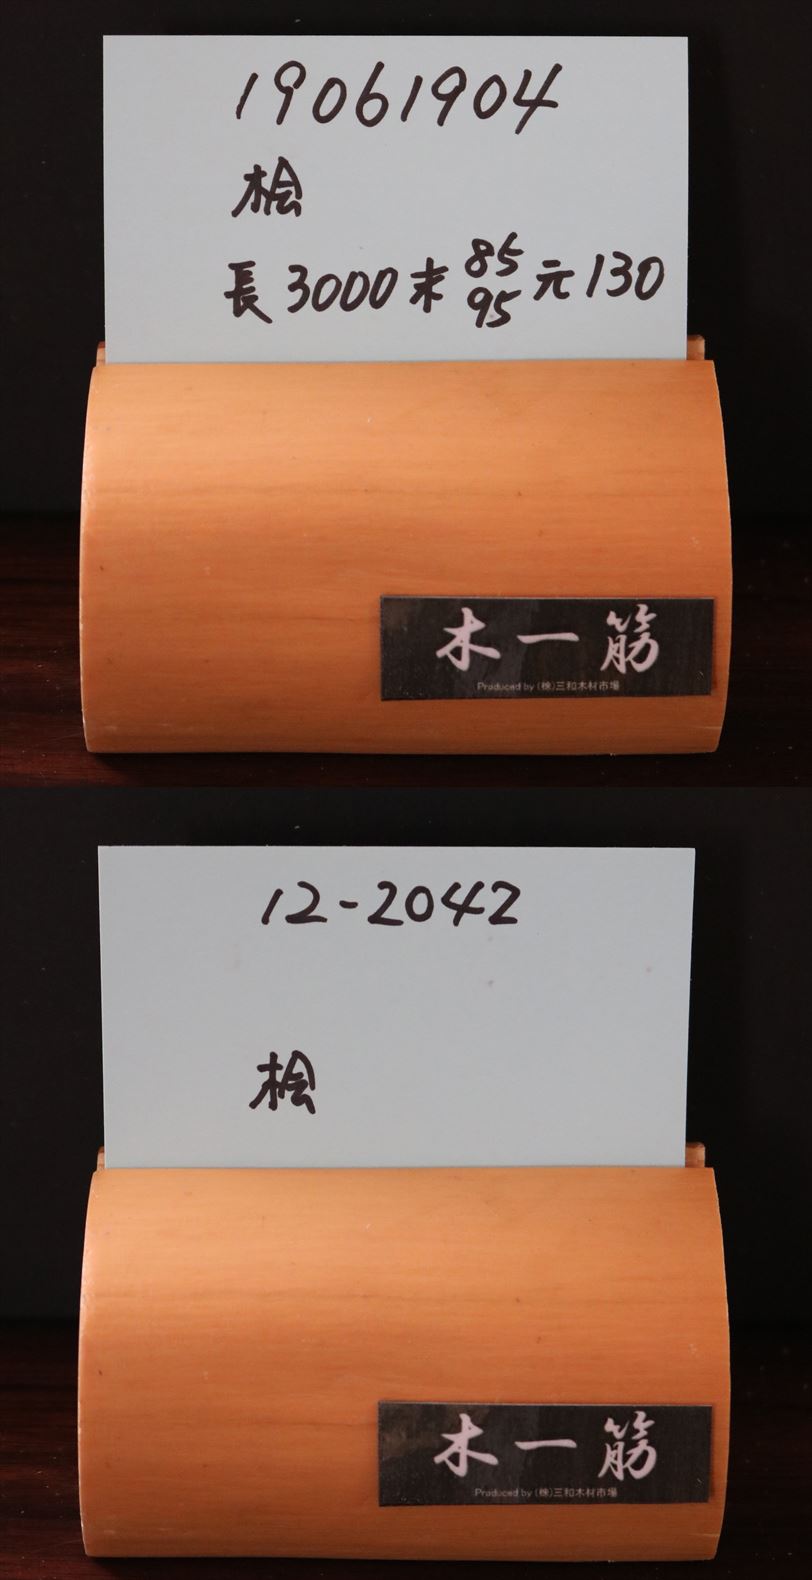 19061904
桧
長3000末85/95元130
木一筋
Produced by (株)三和木材市場
12-2042
桧
木一筋
Produced by (株)三和木材市場